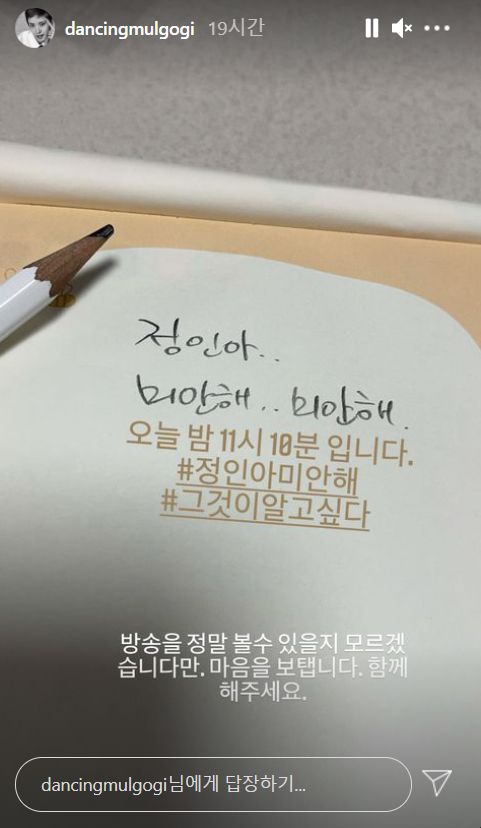 dancingmulgogi 19시간
정인아..
미안해.. 미안해.
오늘 밤 11시 10분 입니다.
#정인아미안해
#그것이알고싶다
방송을 정말 볼수 있을지 모르겠
습니다만. 마음을 보탭니다. 함께
해주세요.
dancingmulgogi님에게 답장하기...